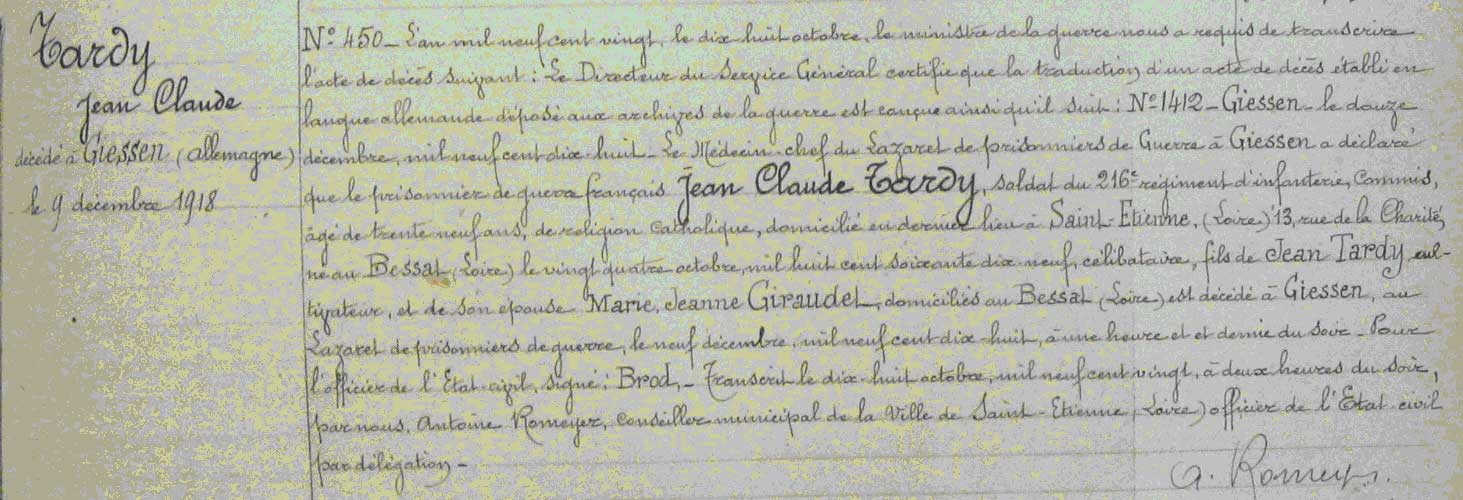 Tardy
Jean Claude
décédé à Giessen (allemagne)
le 9 décembre 1918
N° 450 _ L'an mil neuf cent vingt, le dix huit octobre, le ministre de la guerre nous a requis de transcrire
l'acte de décès suivant : Le Directeur du Service Général certifie que la traduction d'un acte de décès établi en
langue allemande déposé aux archives de la guerre est conçue ainsi qu'il suit : N° 1412 _ Giessen _ le douze
décembre, mil neuf cent dix huit _ Le Médecin-chef du Lazaret de prisonniers de Guerre à Giessen a déclaré
que le prisonnier de guerre français Jean Claude Tardy, soldat du 216e régiment d'infanterie, Commis,
âgé de trente neuf ans, de religion Catholique, domicilié en dernier lieu à Saint-Etienne, (Loire) 13, rue de la Charité,
né au Bessat (Loire) le vingt quatre octobre, mil huit cent soixante dix-neuf, célibataire, fils de Jean Tardy, cul-
tivateur, et de son épouse Marie, Jeanne Giraudet, domiciliés au Bessat (Loire) est décédé à Giessen, au
Lazaret de prisonniers de guerre, le neuf décembre, mil neuf cent dix-huit, à une heure et et demie du soir _ Pour
l'officier de l'Etat-civil, signé : Brod, _ Transcrit le dix-huit octobre, mil neuf cent vingt, à deux heures du soir,
par nous, Antoine Romeyer, conseiller municipal de la Ville de Saint-Etienne (Loire) officier de l'Etat-civil
par délégation _
A. Romeyer